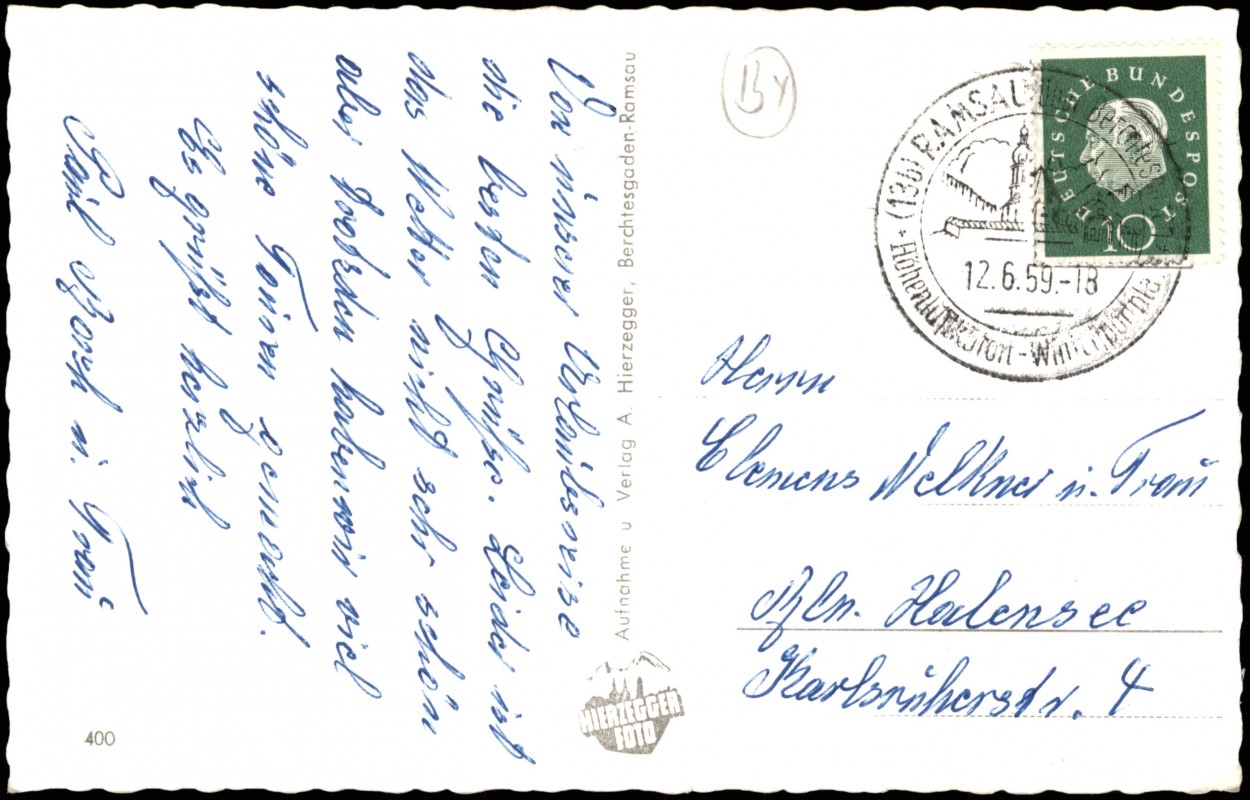 Von unserer Urlaubsreise
die besten Grüße. Leider ist
das Wetter nicht sehr schön
aber trotzdem haben wir viel
schöne Touren gemacht.
Es grüßt herzlich
Paul u. Frau
Aufnahme u Verlag A. Hierzegger, Berchtesgaden-Ramsau
HIERZEGGER
FOTO
400
By
DEUTSCHE BUNDESPOST
10
(13b) RAMSAU über Berchtesgaden
12.6.59.-18
Höhenluftkurort - Wintersportplatz
Herrn
Clemens Welkner u. Frau
Bln. Halensee
Karlsruherstr. 4